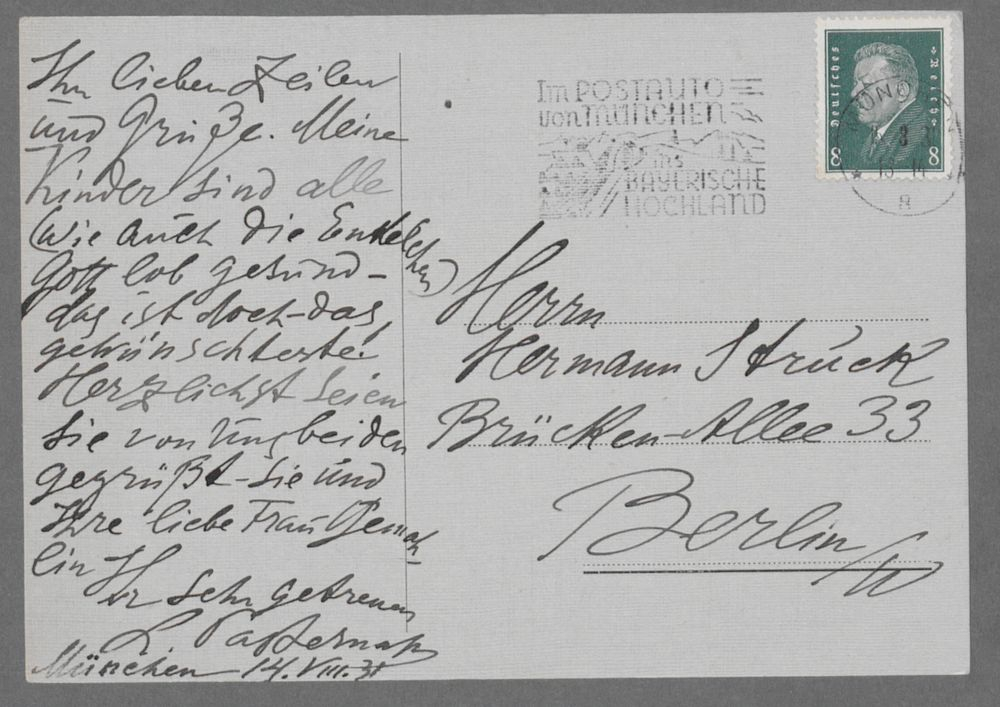 Ihre lieben Zeilen
und Grüße. Meine
Kinder sind alle
(wie auch die Enkelchen)
Gott lob gesund –
das ist doch – das
gewünschteste!
Herzlichst seien
Sie von uns beiden
gegrüßt – Sie und
Ihre liebe Frau Gemah-
lin Ihr sehr getreuer
L. Pasternak
München 14. VIII. 31
Im POSTAUTO
von MÜNCHEN
ins
BAYERISCHE
HOCHLAND
Deutsches Reich
8 8
Herrn
Hermann Struck
Brücken-Allee 33
Berlin W